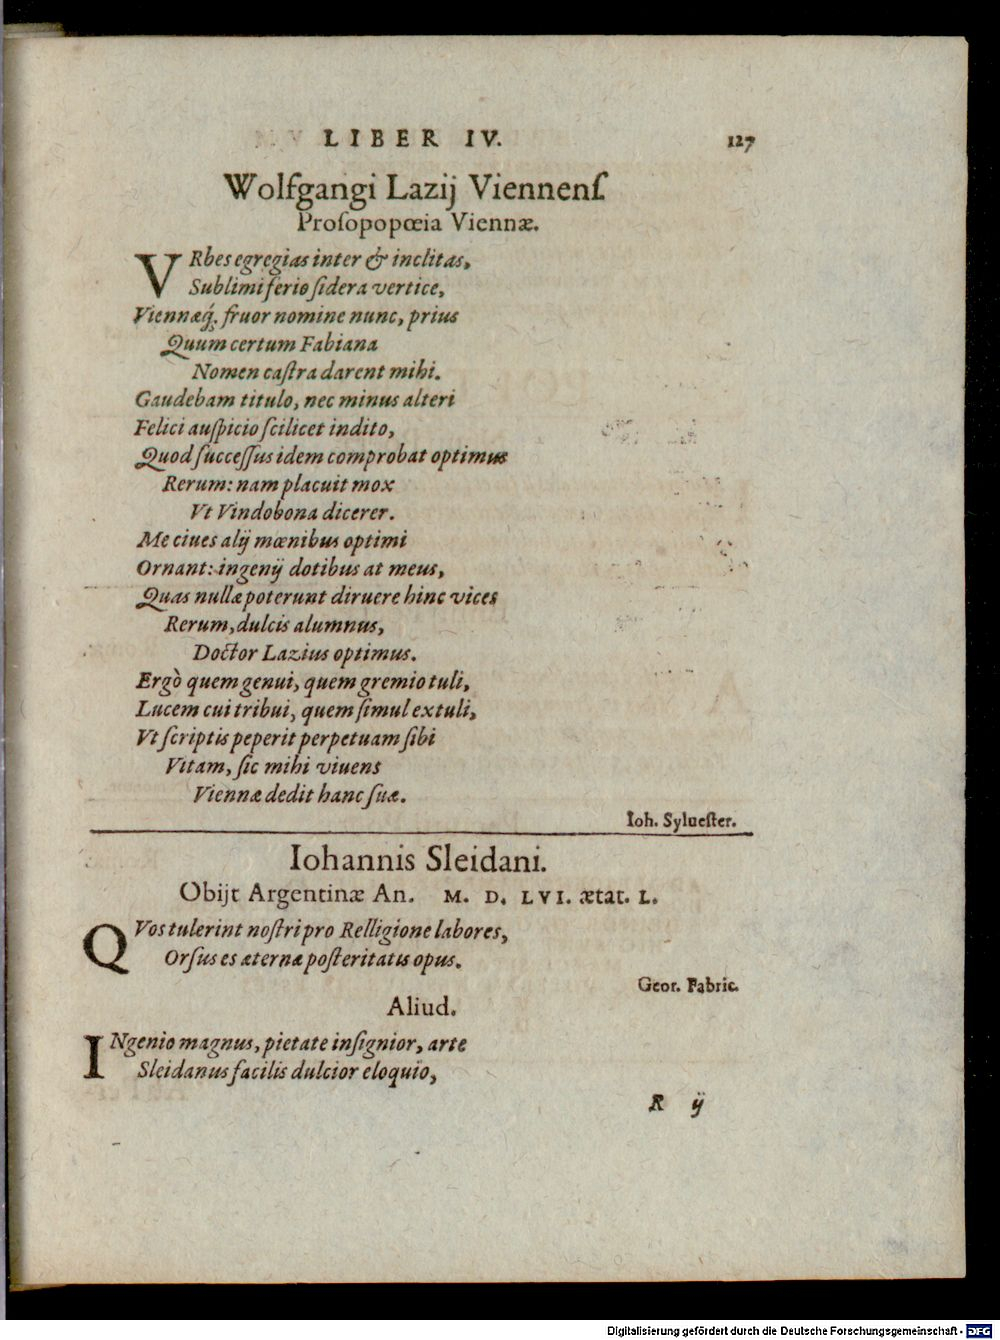 LIBER IV. 127
Wolfgangi Lazij Viennenſ.
Proſopopœia Viennæ.
VRbes egregias inter & inclitas,
Sublimi ferio ſidera vertice,
Viennæq́; fruor nomine nunc, prius
Quum certum Fabiana
Nomen caſtra darent mihi.
Gaudebam titulo, nec minus alteri
Felici auſpicio ſcilicet indito,
Quod ſucceſſus idem comprobat optimus
Rerum: nam placuit mox
Vt Vindobona dicerer.
Me ciues alij mœnibus optimi
Ornant: ingenij dotibus at meus,
Quas nullæ poterunt diruere hinc vices
Rerum, dulcis alumnus,
Doctor Lazius optimus.
Ergò quem genui, quem gremio tuli,
Lucem cui tribui, quem ſimul extuli,
Vt ſcriptis peperit perpetuam ſibi
Vitam, ſic mihi viuens
Viennæ dedit hanc ſuæ.
Ioh. Sylueſter.
Iohannis Sleidani.
Obijt Argentinæ An. M. D. LVI. ætat. L.
QVos tulerint noſtri pro Relligione labores,
Orſus es æternæ poſteritatis opus.
Geor. Fabric.
Aliud.
INgenio magnus, pietate inſignior, arte
Sleidanus facilis dulcior eloquio,
R ij
Digitalisierung gefördert durch die Deutsche Forschungsgemeinschaft - DFG